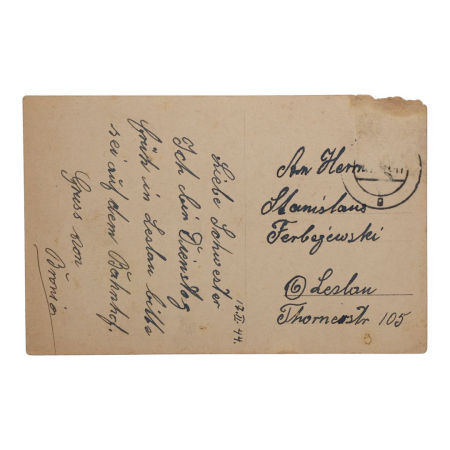 17.II.44.
Liebe Schwester
Ich bin Dienstag
früh in Leslau bitte
sei auf dem Bahnhof.
Gruss von
Bronia
An Herrn
Stanislaus
Ferbejewski
Leslau
Thornerstr 105